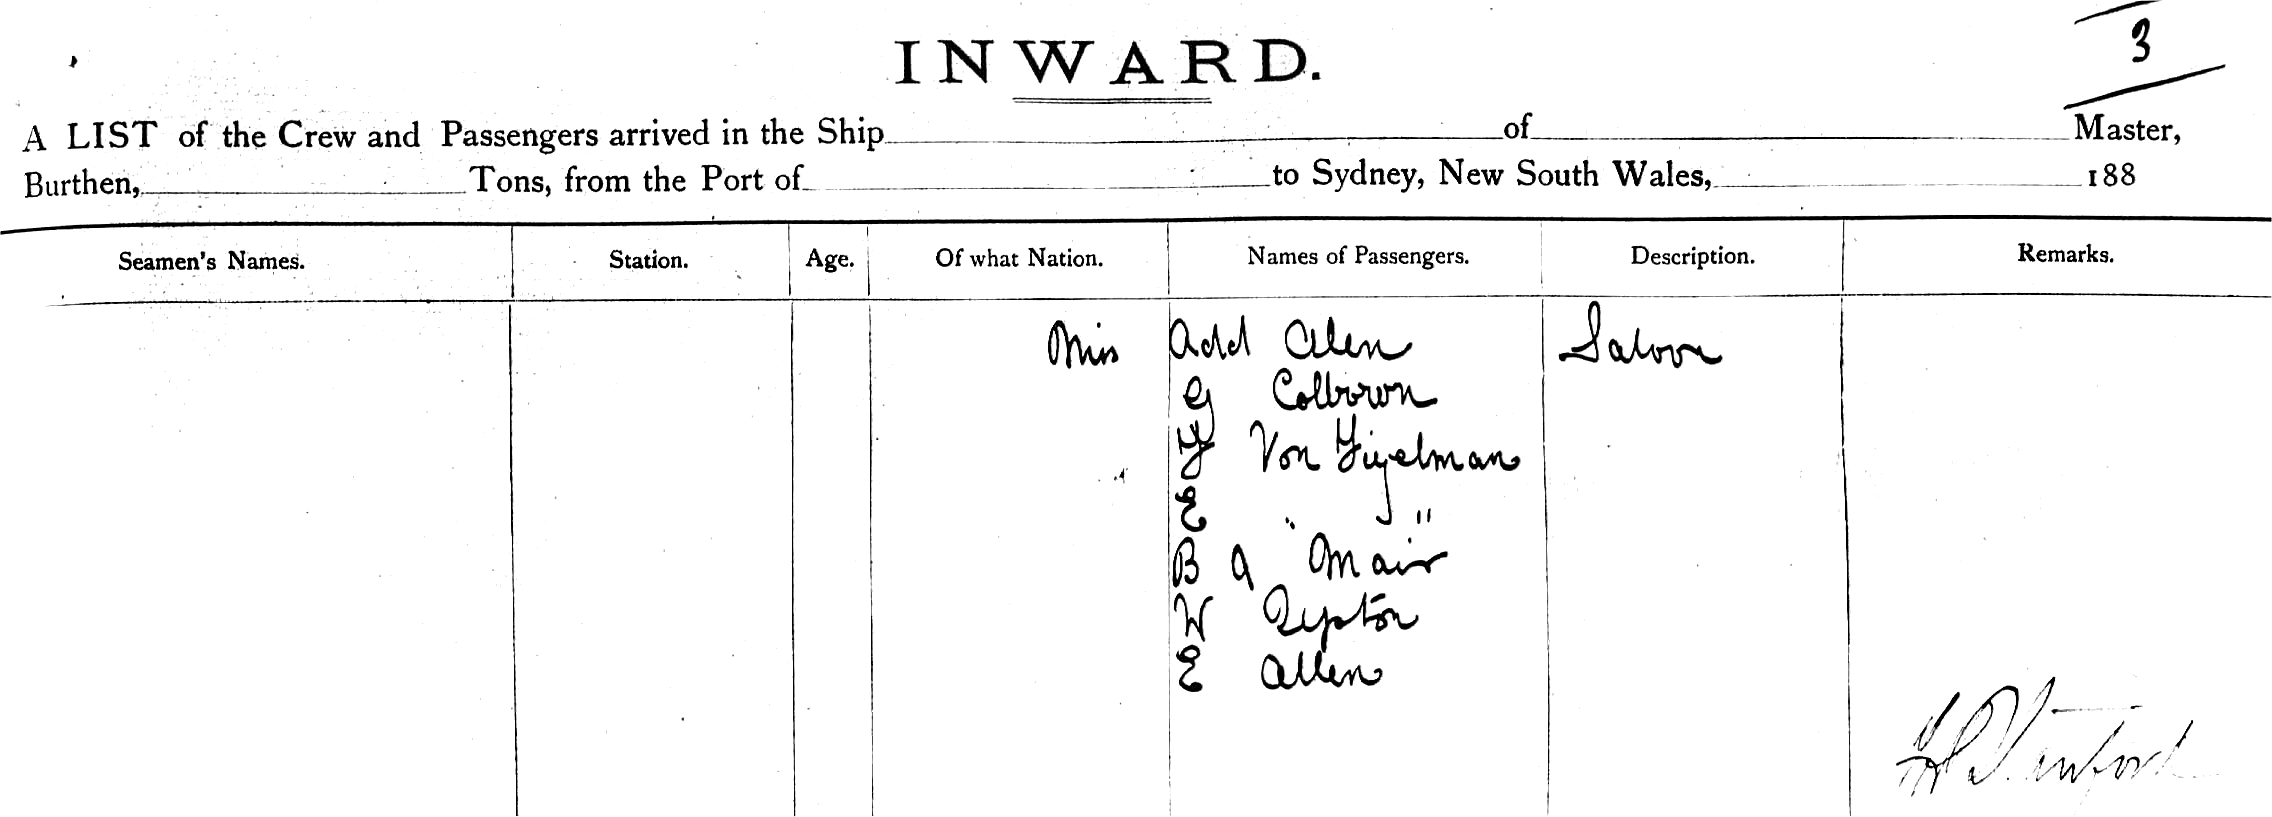 3
INWARD.
A LIST of the Crew and Passengers arrived in the Ship of Master,
Burthen, Tons, from the Port of to Sydney, New South Wales, 188
Seamen's Names. Station. Age. Of what Nation. Names of Passengers. Description. Remarks.
Miss Add Alen Saloon
G Colborn
Y Von
E " "
B A Mair
W
E Allen